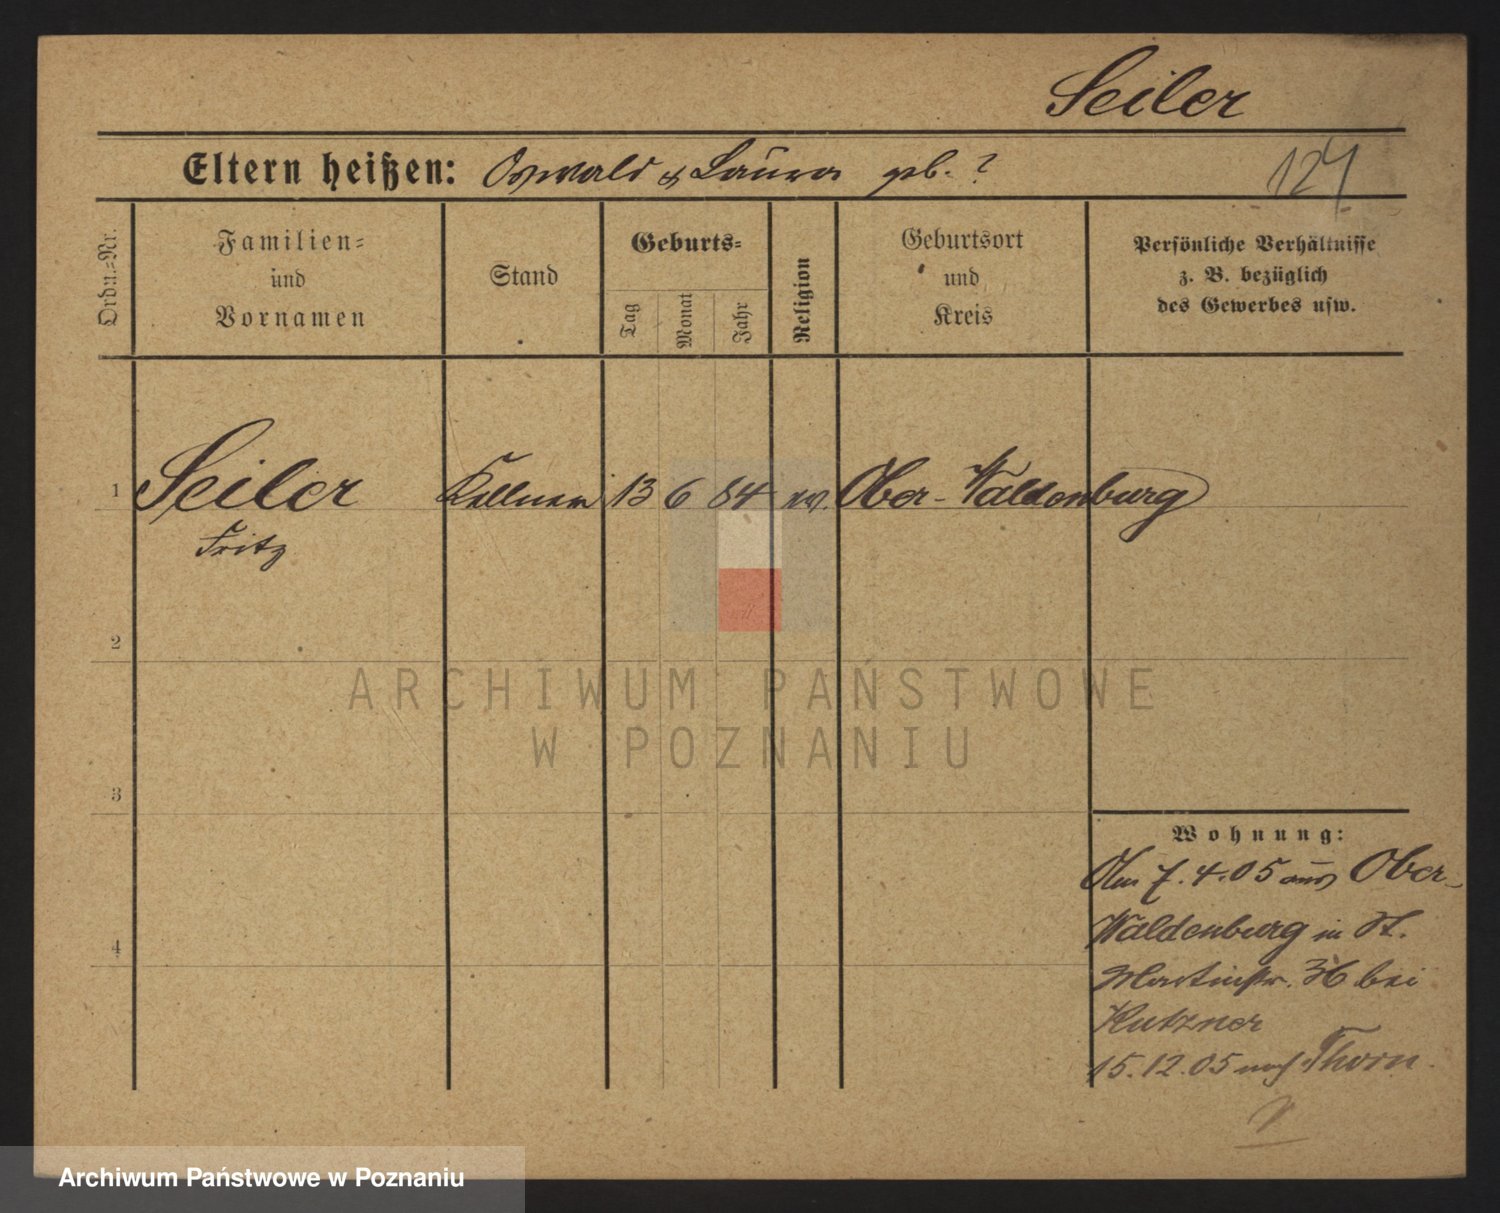 Seiler
Eltern heißen: Oswald & Laura geb. ?
127
Ordn.=Nr.
Familien=
und
Vornamen
Stand
Geburts=
Tag
Monat
Jahr
Religion
Geburtsort
und
Kreis
Persönliche Verhältnisse
z. B. bezüglich
des Gewerbes usw.
1 Seiler Kellner 13 6 84 ev. Ober-Waldenburg
Fritz
2
ARCHIWUM PAŃSTWOWE
W POZNANIU
3
Wohnung:
Am 7.4.05 aus Ober-
Waldenburg in St.
4
Martinstr. 36 bei
Kutzner
15.12.05 nach Thorn.
Archiwum Państwowe w Poznaniu